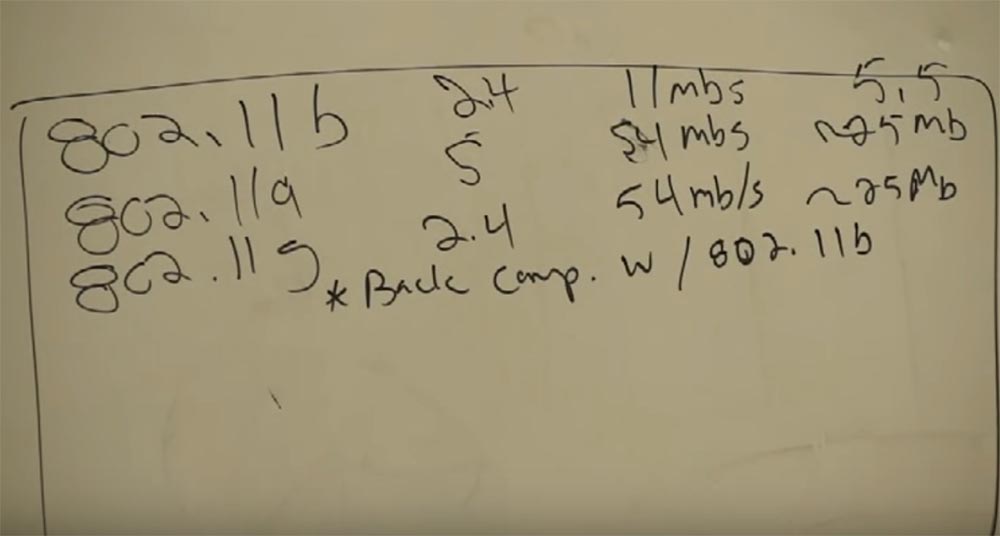 802.11b 2.4 11mbs 5.5
802.11a 5 54mbs ~25Mb
802.11g 2.4 54mb/s ~25Mb
*Back comp. w/802.11b